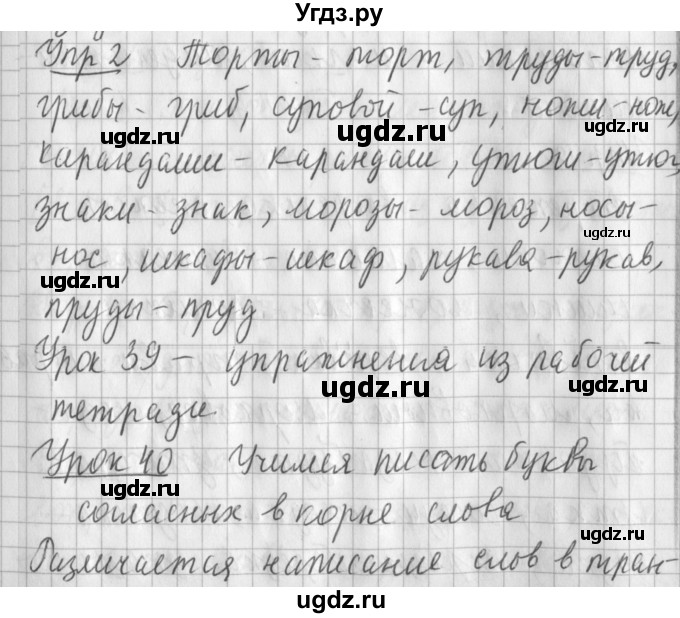 Угдз.ру
Упр 2 Торты - торт, труды - труд,
грибы - гриб, суповой - суп, ножи - нож,
ugdz.ru ugdz.ru ugdz.ru
карандаши - карандаш, утюги - утюг,
знаки - знак, морозы - мороз, носы -
ugdz.ru
нос, шкафы - шкаф, рукава - рукав,
ugdz.ru
пруды - пруд
Урок 39 - упражнения из рабочей
ugdz.ru ugdz.ru
тетради
Урок 40 Учимся писать буквы
ugdz.ru
согласных в корне слова
ugdz.ru
Различается написание слов в тран-
ugdz.ru